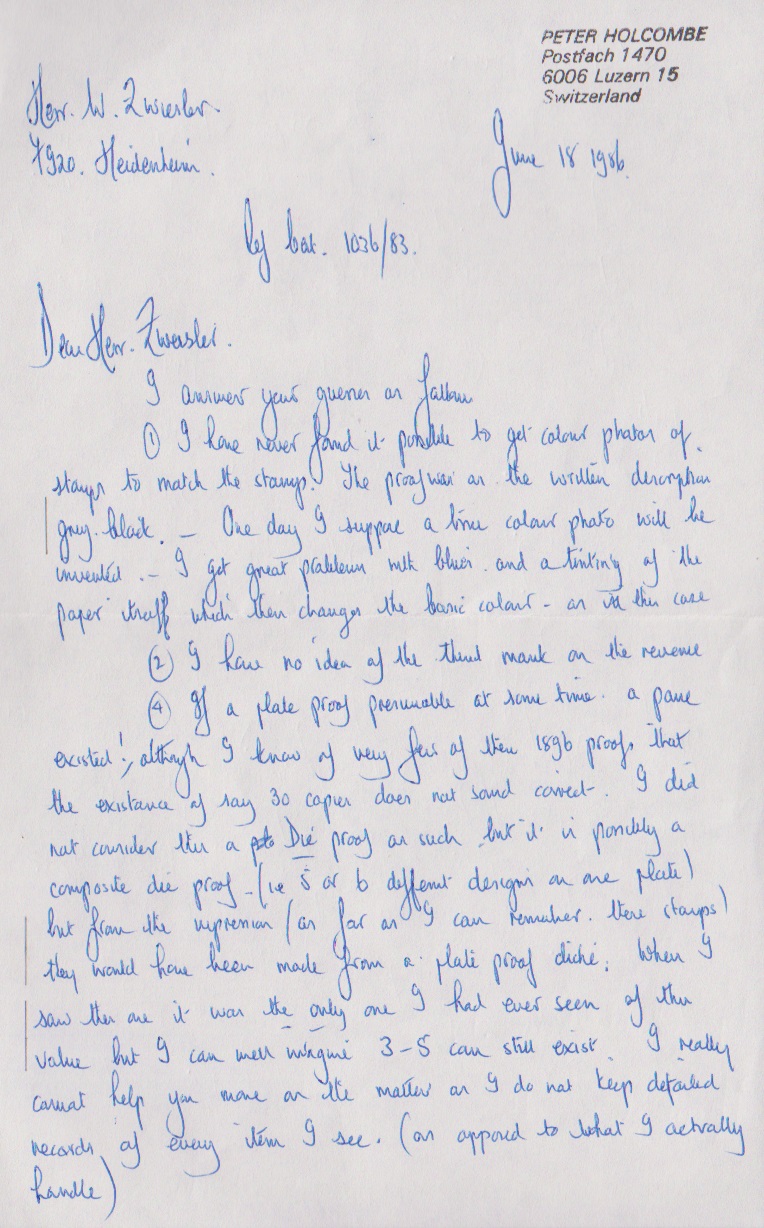 PETER HOLCOMBE
Postfach 1470
6006 Luzern 15
Switzerland
Herr. W. Zwiesler.
7920. Heidenheim.
June 18 1986.
Ref bat. 1036/83.
Dear Herr. Zwiesler.
I answer your queries as follows
① I have never found it possible to get colour photos of
stamps to match the stamps. The proof was as the written description
grey-black. — One day I suppose a true colour photo will be
invented. — I get great problems with blues and a tinting of the
paper itself which then changes the basic colour - as in this case
② I have no idea of the third mark on the revenue
④ If a plate proof presumable at some time a pane
existed!, although I know of very few of these 1896 proofs that
the existance of say 30 copies does not sound correct. I did
not consider this a Die proof as such but it is possibly a
composite die proof - (ie 5 or 6 different designs on one plate)
but from the impression (as far as I can remember these stamps)
they would have been made from a plate proof cliché. When I
saw this one it was the only one I had ever seen of this
value but I can well imagine 3-5 can still exist. I really
cannot help you more on the matter as I do not keep detailed
records of every item I see. (as opposed to what I actually
handle)